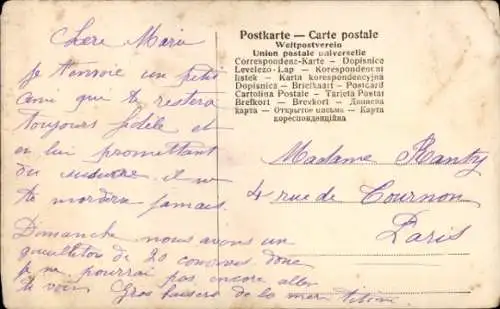 Chere Marie
Je t'envoie un petit
ami que te restera
toujours fidèle et
en lui promettant
du susucre il ne
te mordra jamais.
Dimanche nous avons un
gueuleton de 20 convives donc
je ne pourrai pas encore aller
te voir Gros baisers de la mer titine
Postkarte — Carte postale
Weltpostverein
Union postale universelle
Correspondenz-Karte — Dopisnice
Levelezo-Lap — Korespondencni
listek — Karta korespondencyjna
Dopisnica — Briefkaart — Postcard
Cartolina Postale — Tarjeta Postal
Brefkort — Brevkort — Дописна
карта — Открытое письмо — Карта
кореспонденційна
Madame
4 rue de Cournon
Paris